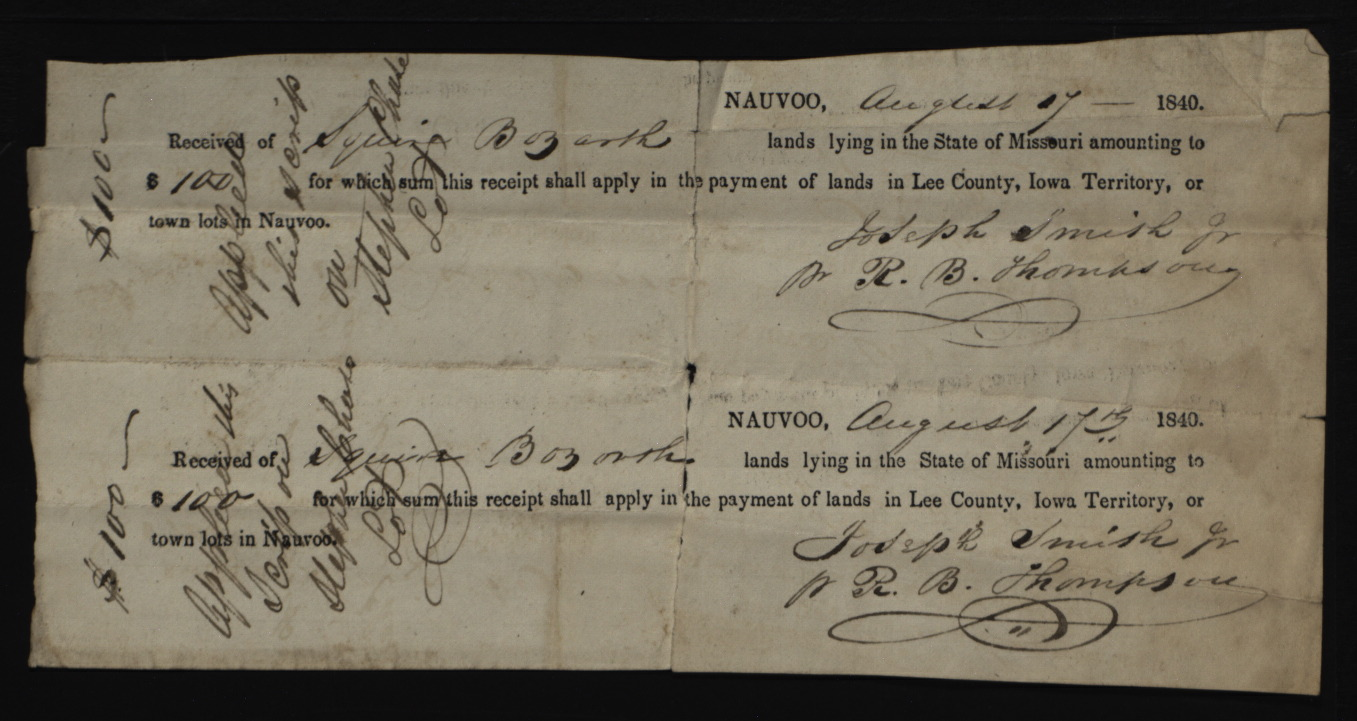 NAUVOO, August 17 — 1840.
Received of Squire Bozarth lands lying in the State of Missouri amounting to
$ 100 for which sum this receipt shall apply in the payment of lands in Lee County, Iowa Territory, or
town lots in Nauvoo.
Joseph Smith Jr
pr R. B. Thompson
$100 —
Applied
this scrip
on
Stephen Chase
Lot
NAUVOO, August 17th 1840.
Received of Squire Bozorth lands lying in the State of Missouri amounting to
$ 100 for which sum this receipt shall apply in the payment of lands in Lee County, Iowa Territory, or
town lots in Nauvoo.
Joseph Smith Jr
pr R. B. Thompson
$100 —
Applied this
Scrip on
Stephen Chase
Lot